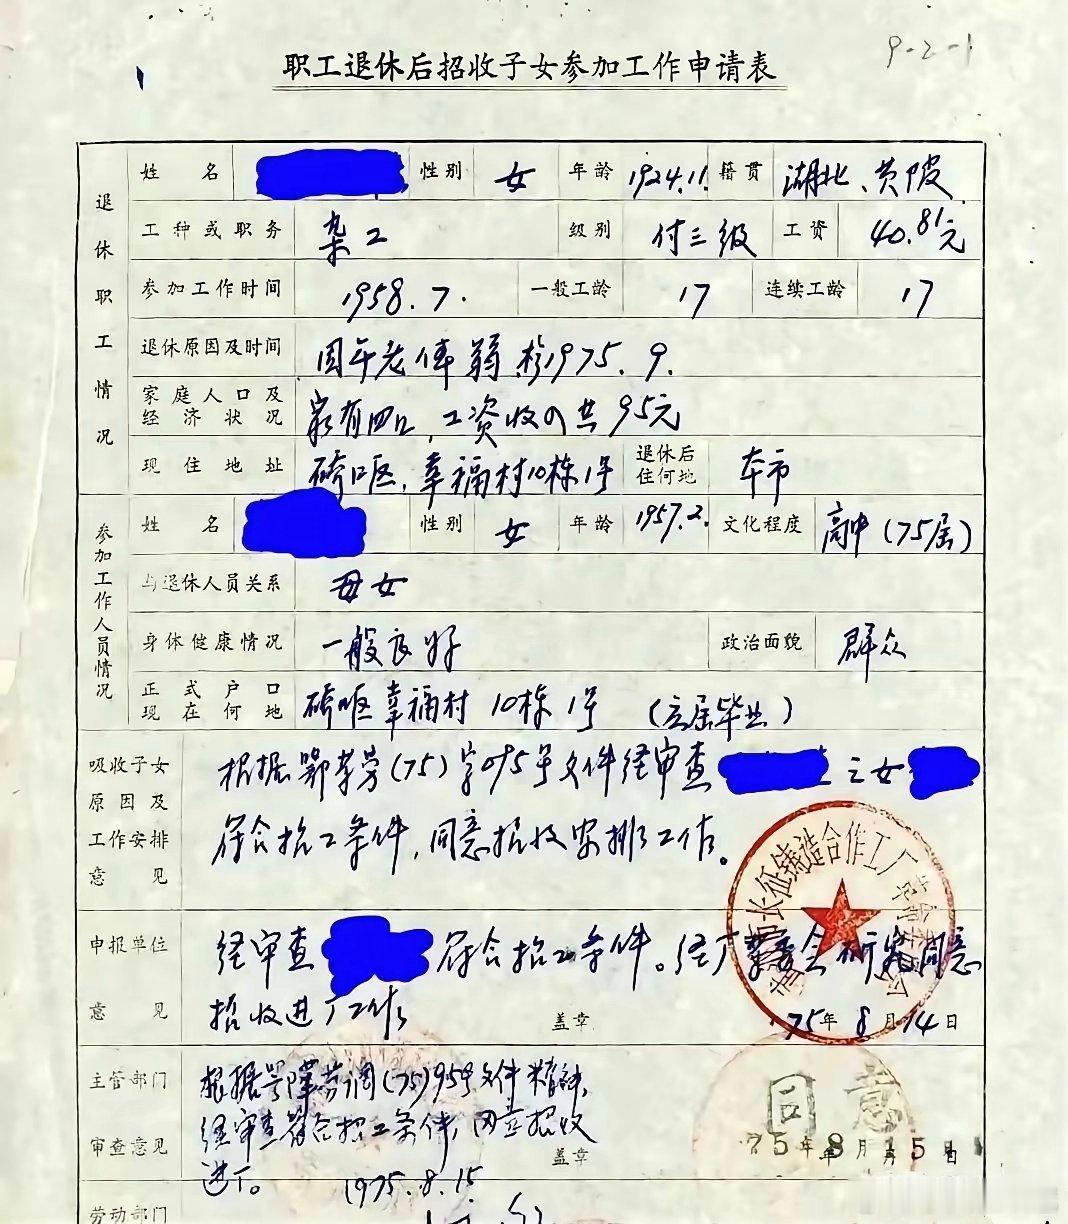 9-2-1
职工退休后招收子女参加工作申请表
退休职工情况
姓名 性别 女 年龄 1924.11. 籍贯 湖北、黄陂
工种或职务 杂工 级别 付三级 工资 40.81元
参加工作时间 1958.7. 一般工龄 17 连续工龄 17
退休原因及时间 因年老体弱.于1975.9.
家庭人口及经济状况 家有四口,工资收入共95元
现住地址 硚口区,幸福村10栋1号 退休后住何地 本市
参加工作人员情况
姓名 性别 女 年龄 1957.2. 文化程度 高中(75届)
与退休人员关系 母女
身体健康情况 一般良好 政治面貌 群众
正式户口现在何地 硚口区幸福村 10栋1号 (应届毕业)
吸收子女原因及工作安排意见
根据鄂革劳(75)字095号文件经审查 之女
符合招工条件,同意招收安排工作。
长征铸造合作工厂革命委员会
申报单位意见
经审查 符合招工条件。经厂革委会研究同意
招收进厂工作 盖章 75年8月14日
主管部门审查意见
根据鄂 劳调(75)95号文件精神,
经审查符合招工条件,同意招收
进厂。 1975.8.15
同意
盖章 75年8月15日
劳动部门